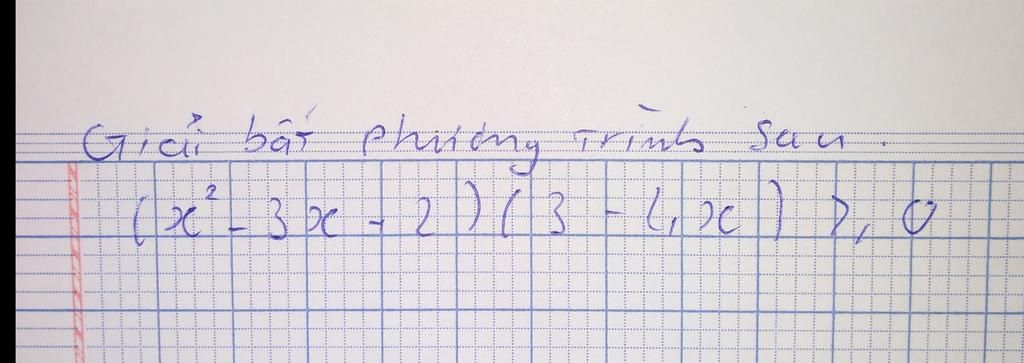 Giải bất phương trình sau.
(x² - 3x - 2)(3 - 4x) ≥ 0